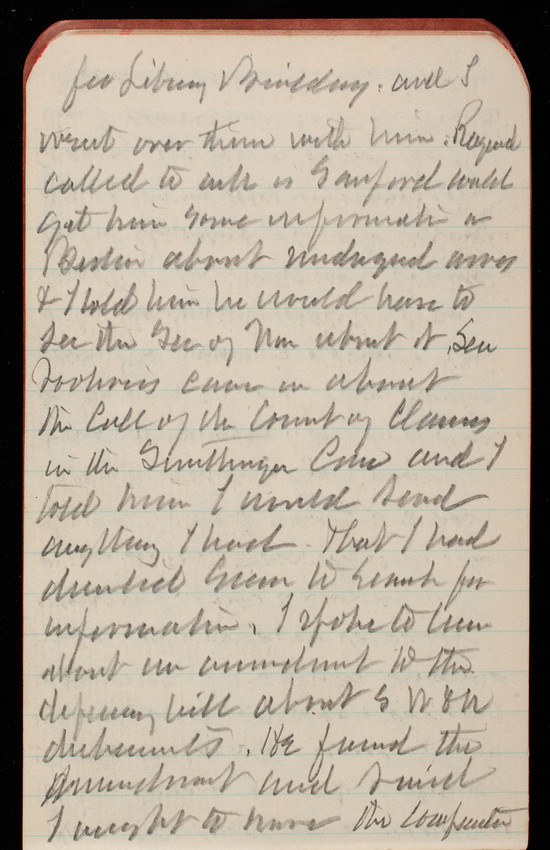 for Library Building. and I
went over them with him.
called to ask is Sanford could
get him some information in
about
& I told him he would have to
see the Sec of War about it. Sen
came in about
the Call of the Court of Claims
in the Case and I
told him I would send
anything I had. That I had
directed to search for
information. I spoke to him
about an amendment to the
deficiency bill about
. He found the
Amendment and said
I ought to have the